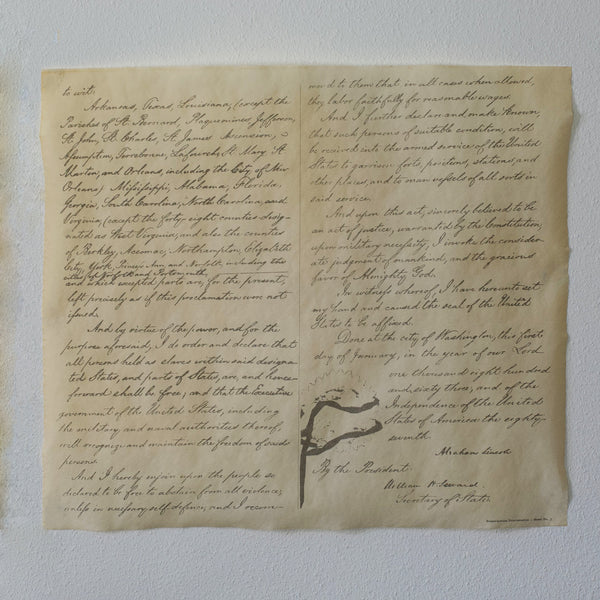 to wit:
Arkansas, Texas, Louisiana, (except the
Parishes of St. Bernard, Plaquemines, Jefferson,
St. John, St. Charles, St. James Ascension,
Assumption, Terrebonne, Lafourche, St. Mary, St.
Martin, and Orleans, including the City of New
Orleans) Mississippi, Alabama, Florida,
Georgia, South Carolina, North Carolina, and
Virginia, (except the forty-eight counties desig-
nated as West Virginia, and also the counties
of Berkley, Accomac, Northampton, Elizabeth
City, York, Princess Ann, and Norfolk, including the
cities of Norfolk and Portsmouth
and which excepted parts are, for the present,
left precisely as if this proclamation were not
issued.
And by virtue of the power, and for the
purpose aforesaid, I do order and declare that
all persons held as slaves within said designa-
ted States, and parts of States, are, and hence-
forward shall be free; and that the Executive
government of the United States, including
the military and naval authorities thereof,
will recognize and maintain the freedom of said
persons.
And I hereby enjoin upon the people so
declared to be free to abstain from all violence,
unless in necessary self-defence; and I recom-
mend to them that in all cases when allowed,
they labor faithfully for reasonable wages.
And I further declare and make known,
that such persons of suitable condition, will
be received into the armed service of the United
States to garrison forts, positions, stations, and
other places, and to man vessels of all sorts in
said service.
And upon this act, sincerely believed to be
an act of justice, warranted by the Constitution,
upon military necessity, I invoke the consider-
ate judgment of mankind, and the gracious
favor of Almighty God.
In witness whereof, I have hereunto set
my hand and caused the seal of the United
States to be affixed.
Done at the city of Washington, this first
day of January, in the year of our Lord
one thousand eight hundred
and sixty three, and of the
Independence of the United
States of America the eighty-
seventh.
Abraham Lincoln
By the President:
William H. Seward,
Secretary of State.